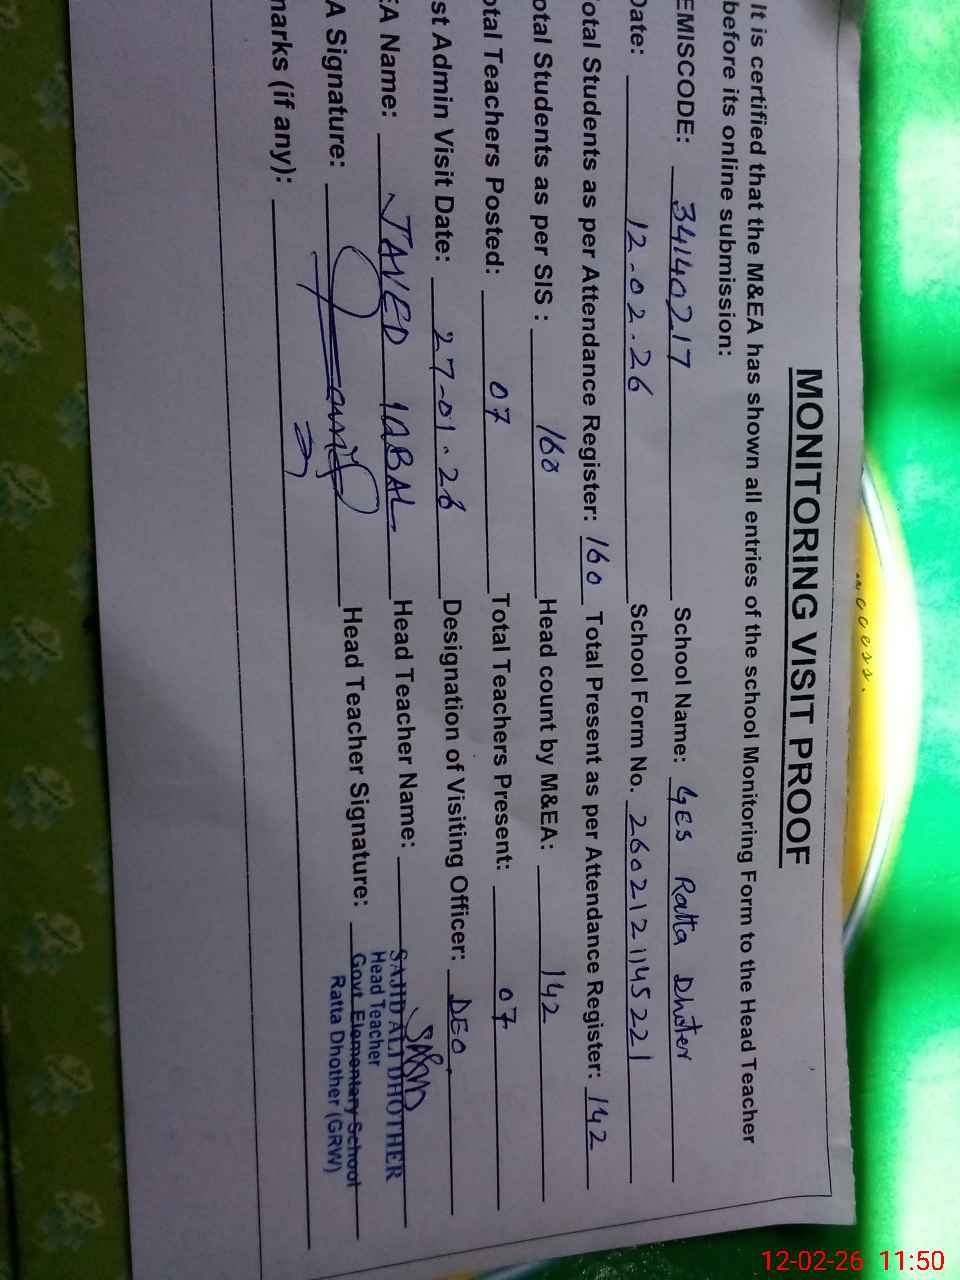 MONITORING VISIT PROOF
It is certified that the M&EA has shown all entries of the school Monitoring Form to the Head Teacher
before its online submission:
EMISCODE: 34140217 School Name: GES Ratta Dhoter
Date: 12.02.26 School Form No. 2602121145221
Total Students as per Attendance Register: 160 Total Present as per Attendance Register: 142
otal Students as per SIS : 160 Head count by M&EA: 142
otal Teachers Posted: 07 Total Teachers Present: 07
st Admin Visit Date: 27-01.26 Designation of Visiting Officer: DEO
EA Name: JAVED IQBAL Head Teacher Name:
A Signature: Head Teacher Signature:
SAJID ALI DHOTHER
Head Teacher
Govt Elementary School
Ratta Dhother (GRW)
marks (if any):
12-02-26 11:50